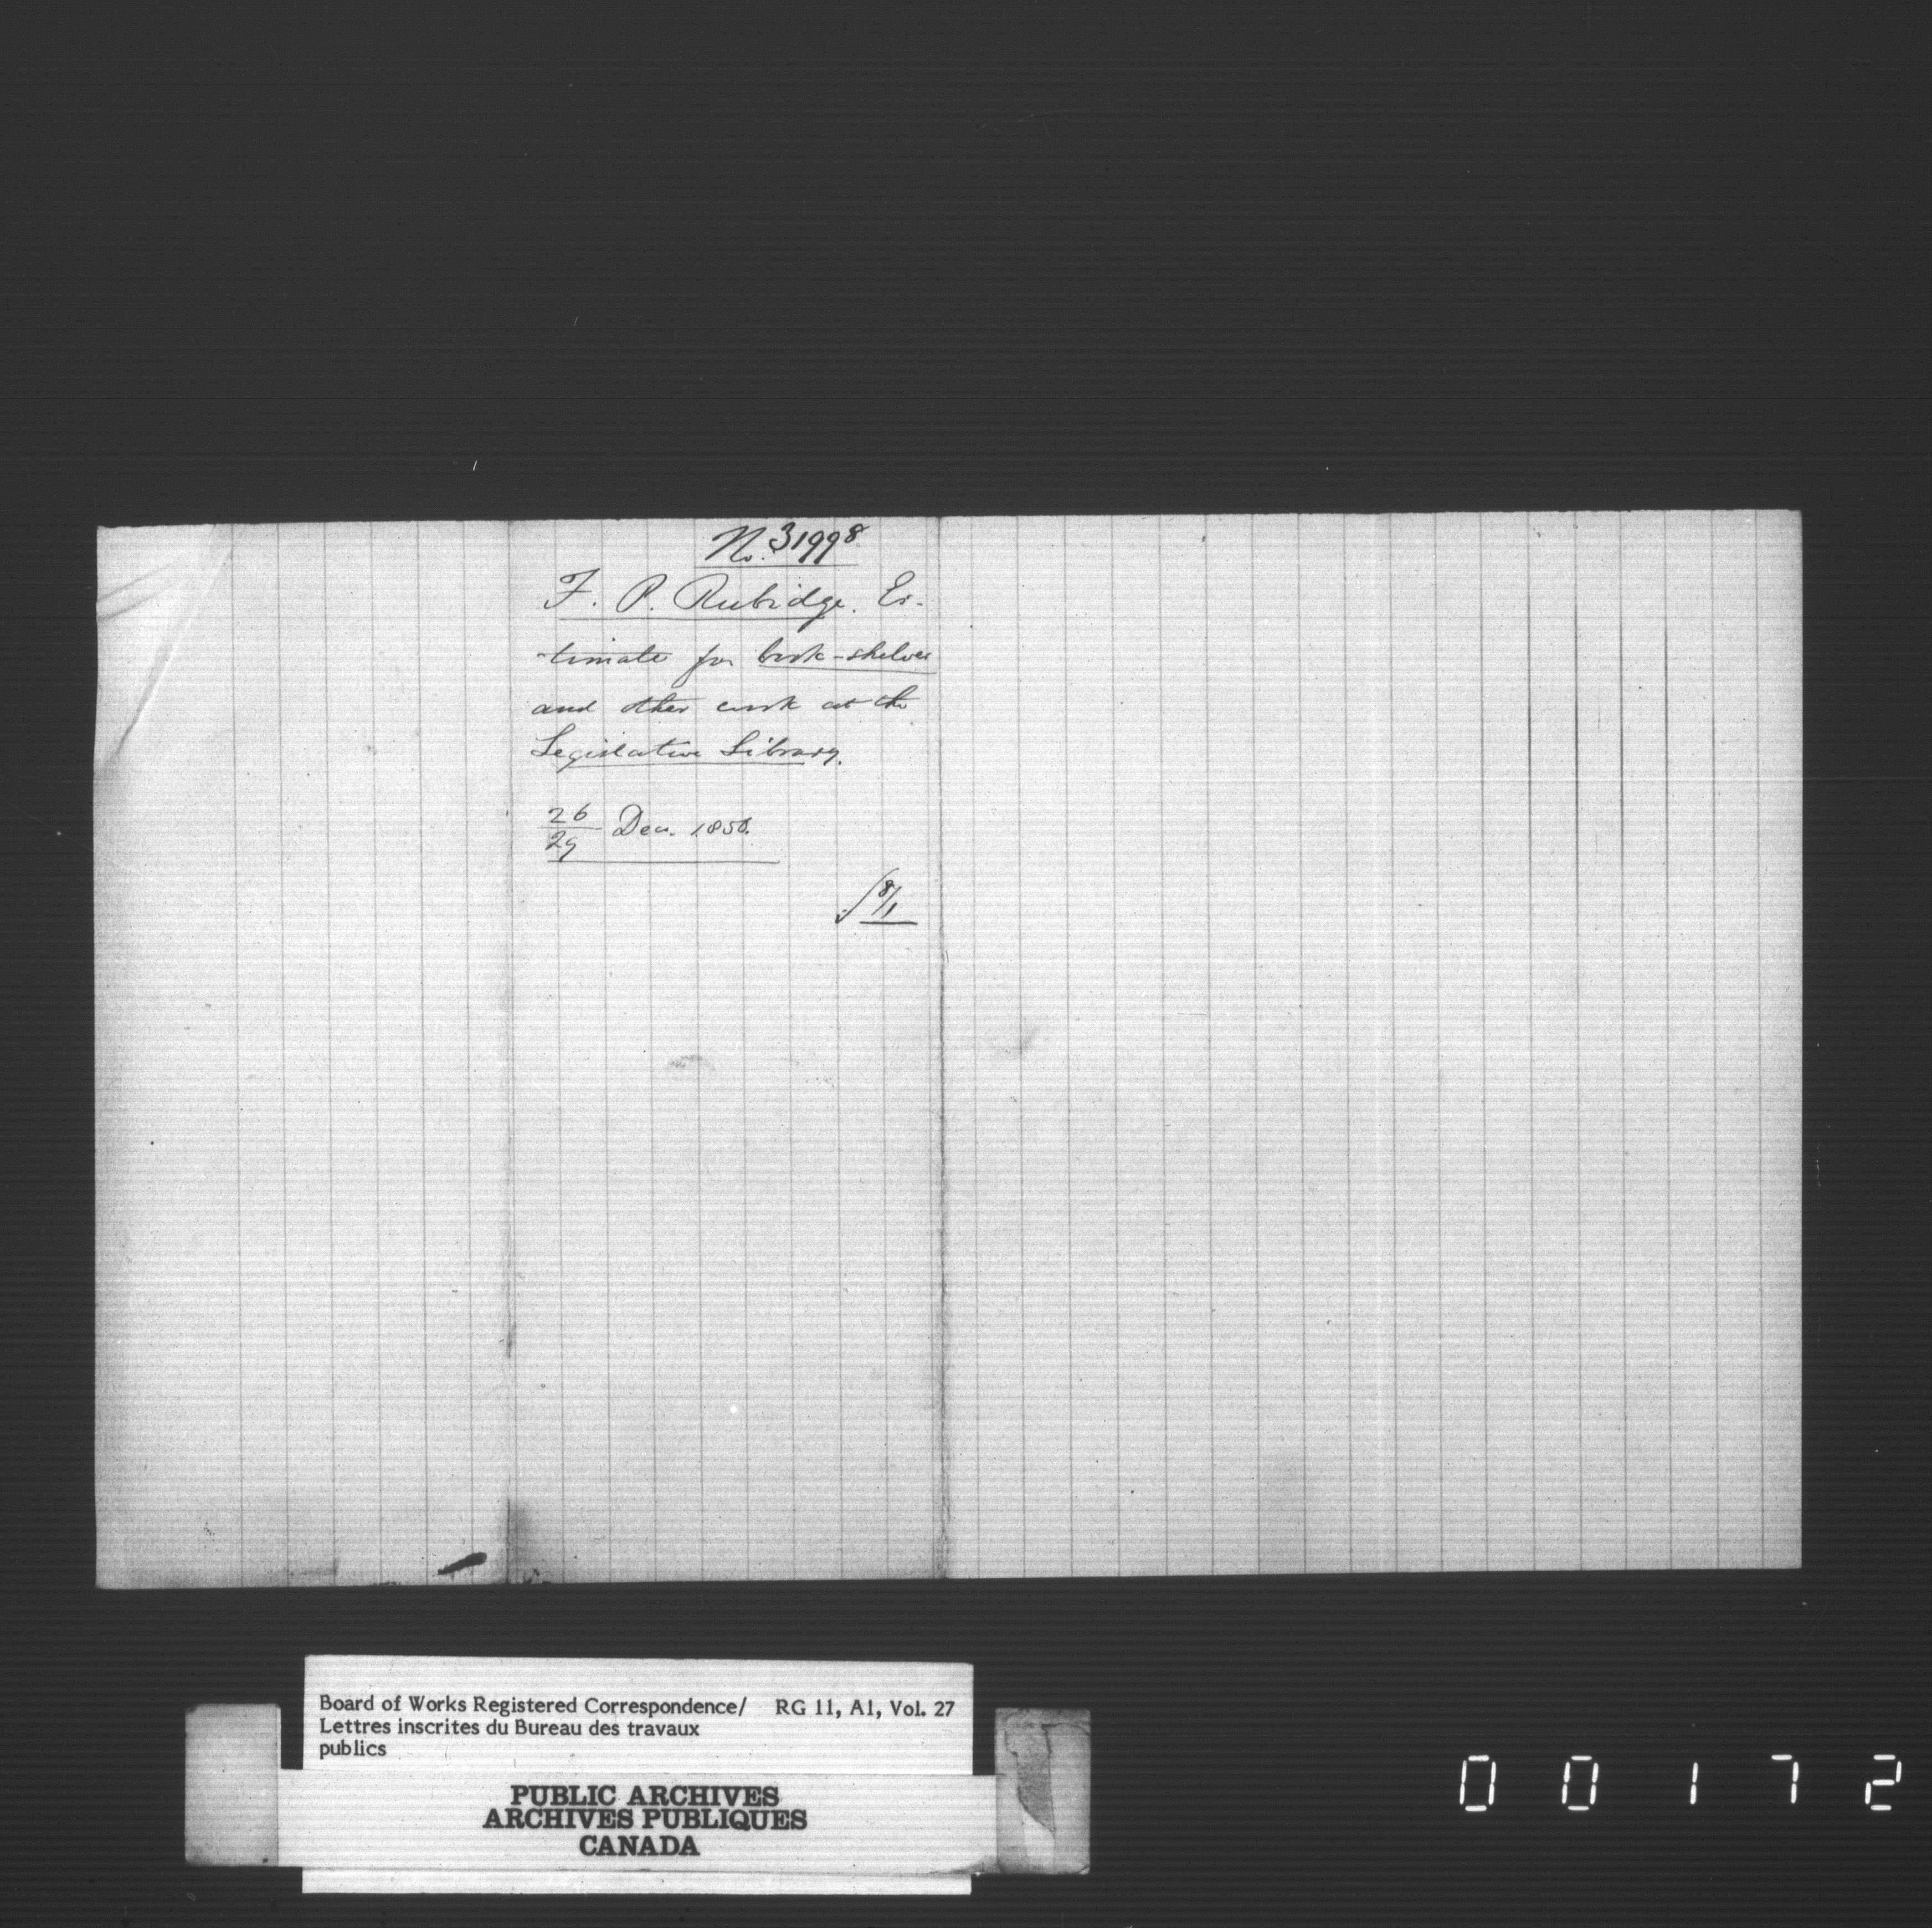 No. 31998
F. P. Rubidge. Es-
timate for book-shelves
and other work at the
Legislative Library.
26/29 Dec. 1856.
8/1
Board of Works Registered Correspondence/ RG 11, A1, Vol. 27
Lettres inscrites du Bureau des travaux
publics
PUBLIC ARCHIVES
ARCHIVES PUBLIQUES
CANADA
00172